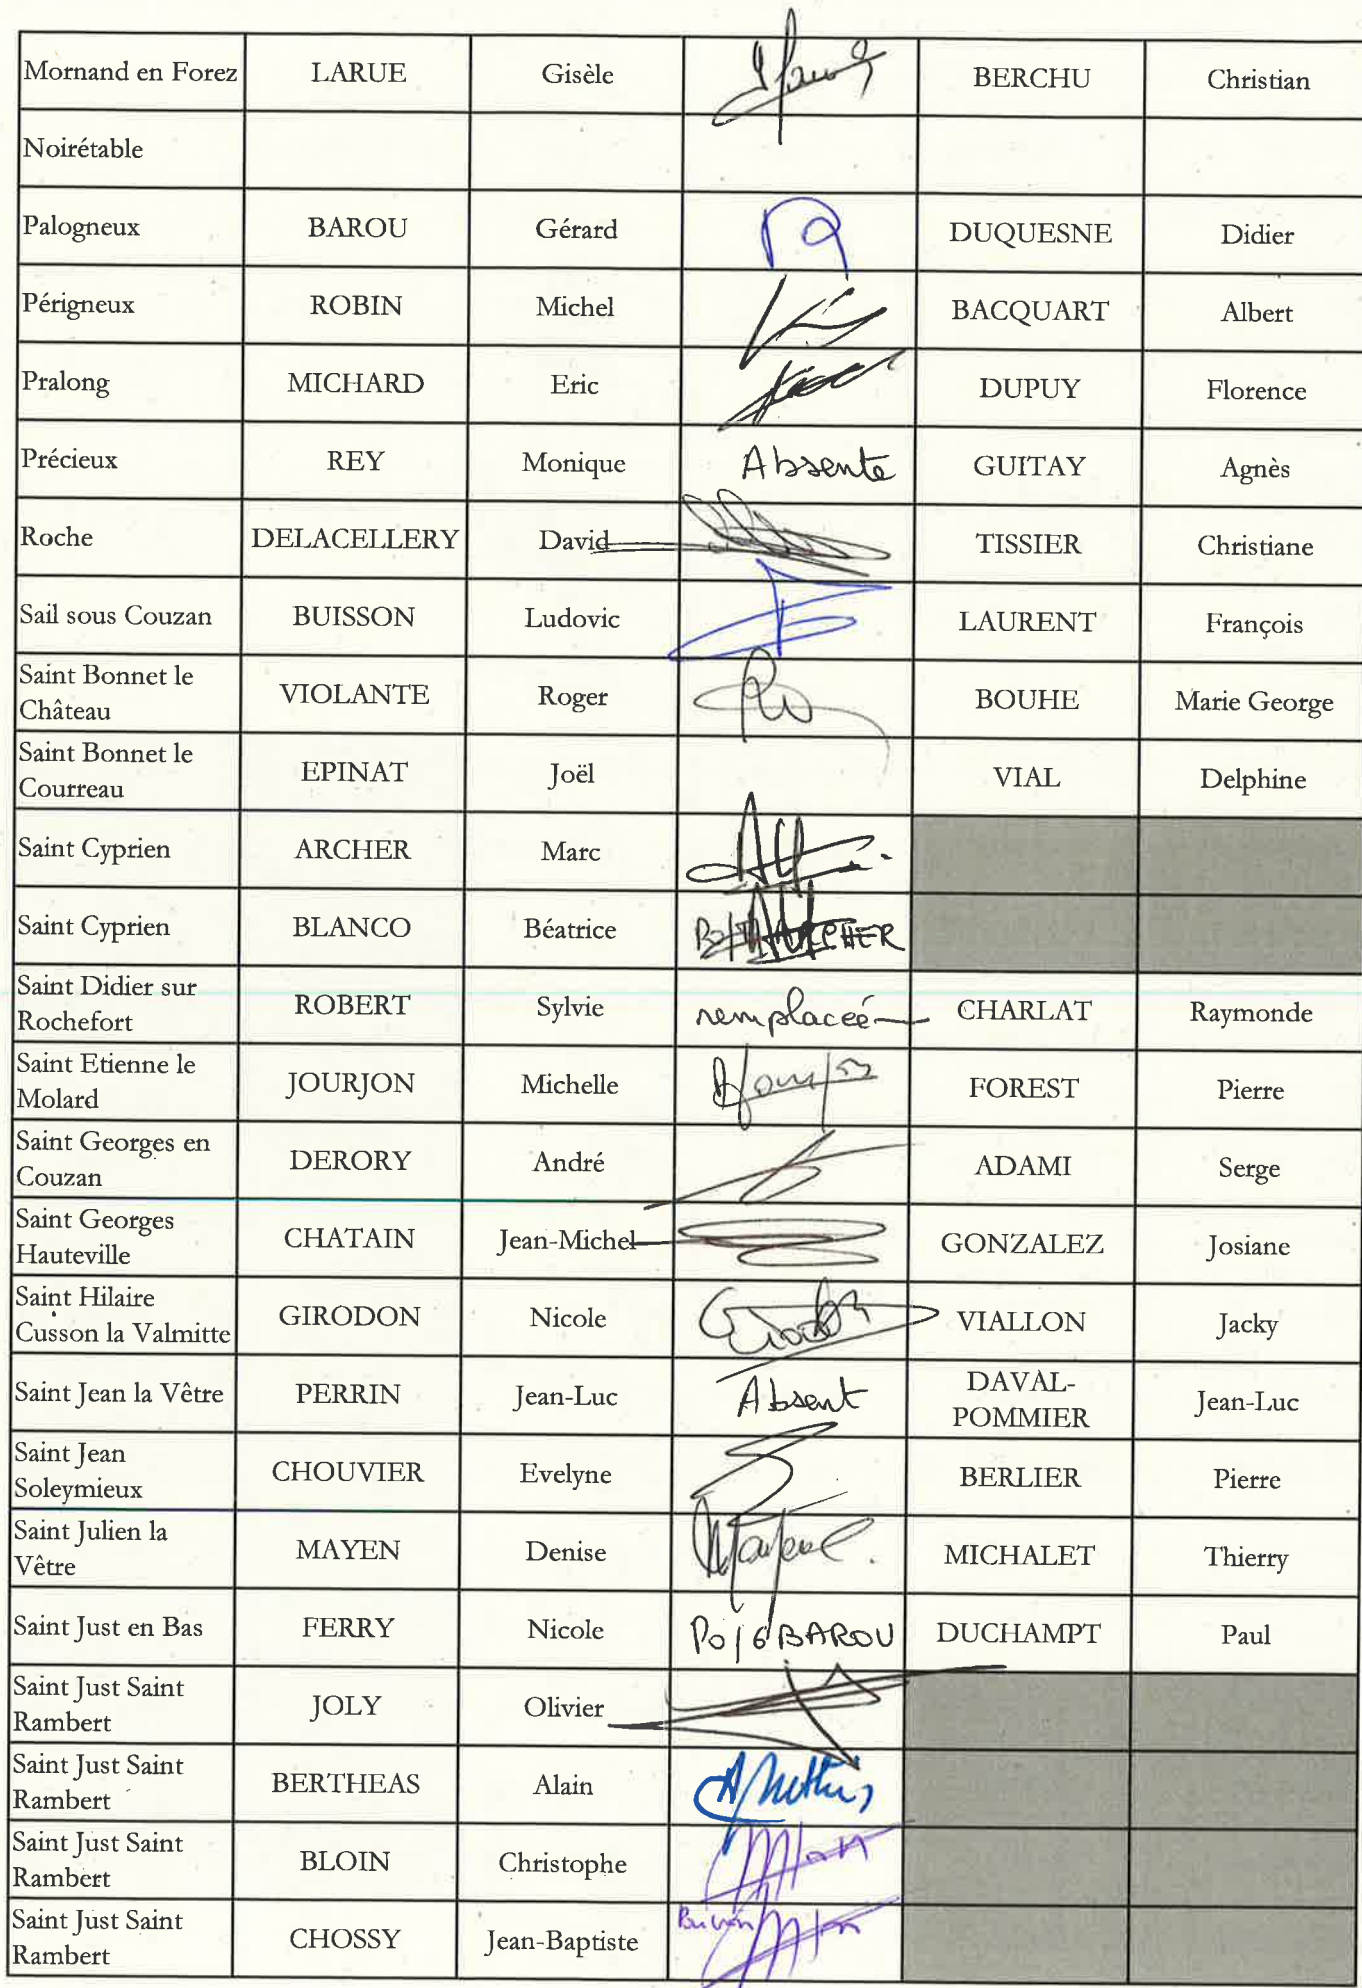 Mornand en Forez LARUE Gisèle BERCHU Christian
Noirétable
Palogneux BAROU Gérard DUQUESNE Didier
Périgneux ROBIN Michel BACQUART Albert
Pralong MICHARD Eric DUPUY Florence
Précieux REY Monique Absente GUITAY Agnès
Roche DELACELLERY David TISSIER Christiane
Sail sous Couzan BUISSON Ludovic LAURENT François
Saint Bonnet le
Château VIOLANTE Roger BOUHE Marie George
Saint Bonnet le
Courreau EPINAT Joël VIAL Delphine
Saint Cyprien ARCHER Marc
Saint Cyprien BLANCO Béatrice ARCHER
Saint Didier sur
Rochefort ROBERT Sylvie remplaceé CHARLAT Raymonde
Saint Etienne le
Molard JOURJON Michelle FOREST Pierre
Saint Georges en
Couzan DERORY André ADAMI Serge
Saint Georges
Hauteville CHATAIN Jean-Michel GONZALEZ Josiane
Saint Hilaire
Cusson la Valmitte GIRODON Nicole VIALLON Jacky
Saint Jean la Vêtre PERRIN Jean-Luc Absent DAVAL-
POMMIER Jean-Luc
Saint Jean
Soleymieux CHOUVIER Evelyne BERLIER Pierre
Saint Julien la
Vêtre MAYEN Denise MICHALET Thierry
Saint Just en Bas FERRY Nicole Po/G BAROU DUCHAMPT Paul
Saint Just Saint
Rambert JOLY Olivier
Saint Just Saint
Rambert BERTHEAS Alain
Saint Just Saint
Rambert BLOIN Christophe
Saint Just Saint
Rambert CHOSSY Jean-Baptiste